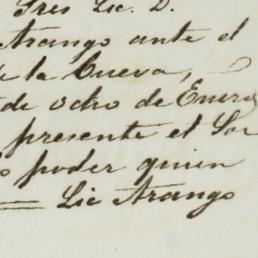 Tres Lic. D.
Arango ante el
de la Cueva,
de octro de Enero
presente el Sor
poder quien
Lic Arango